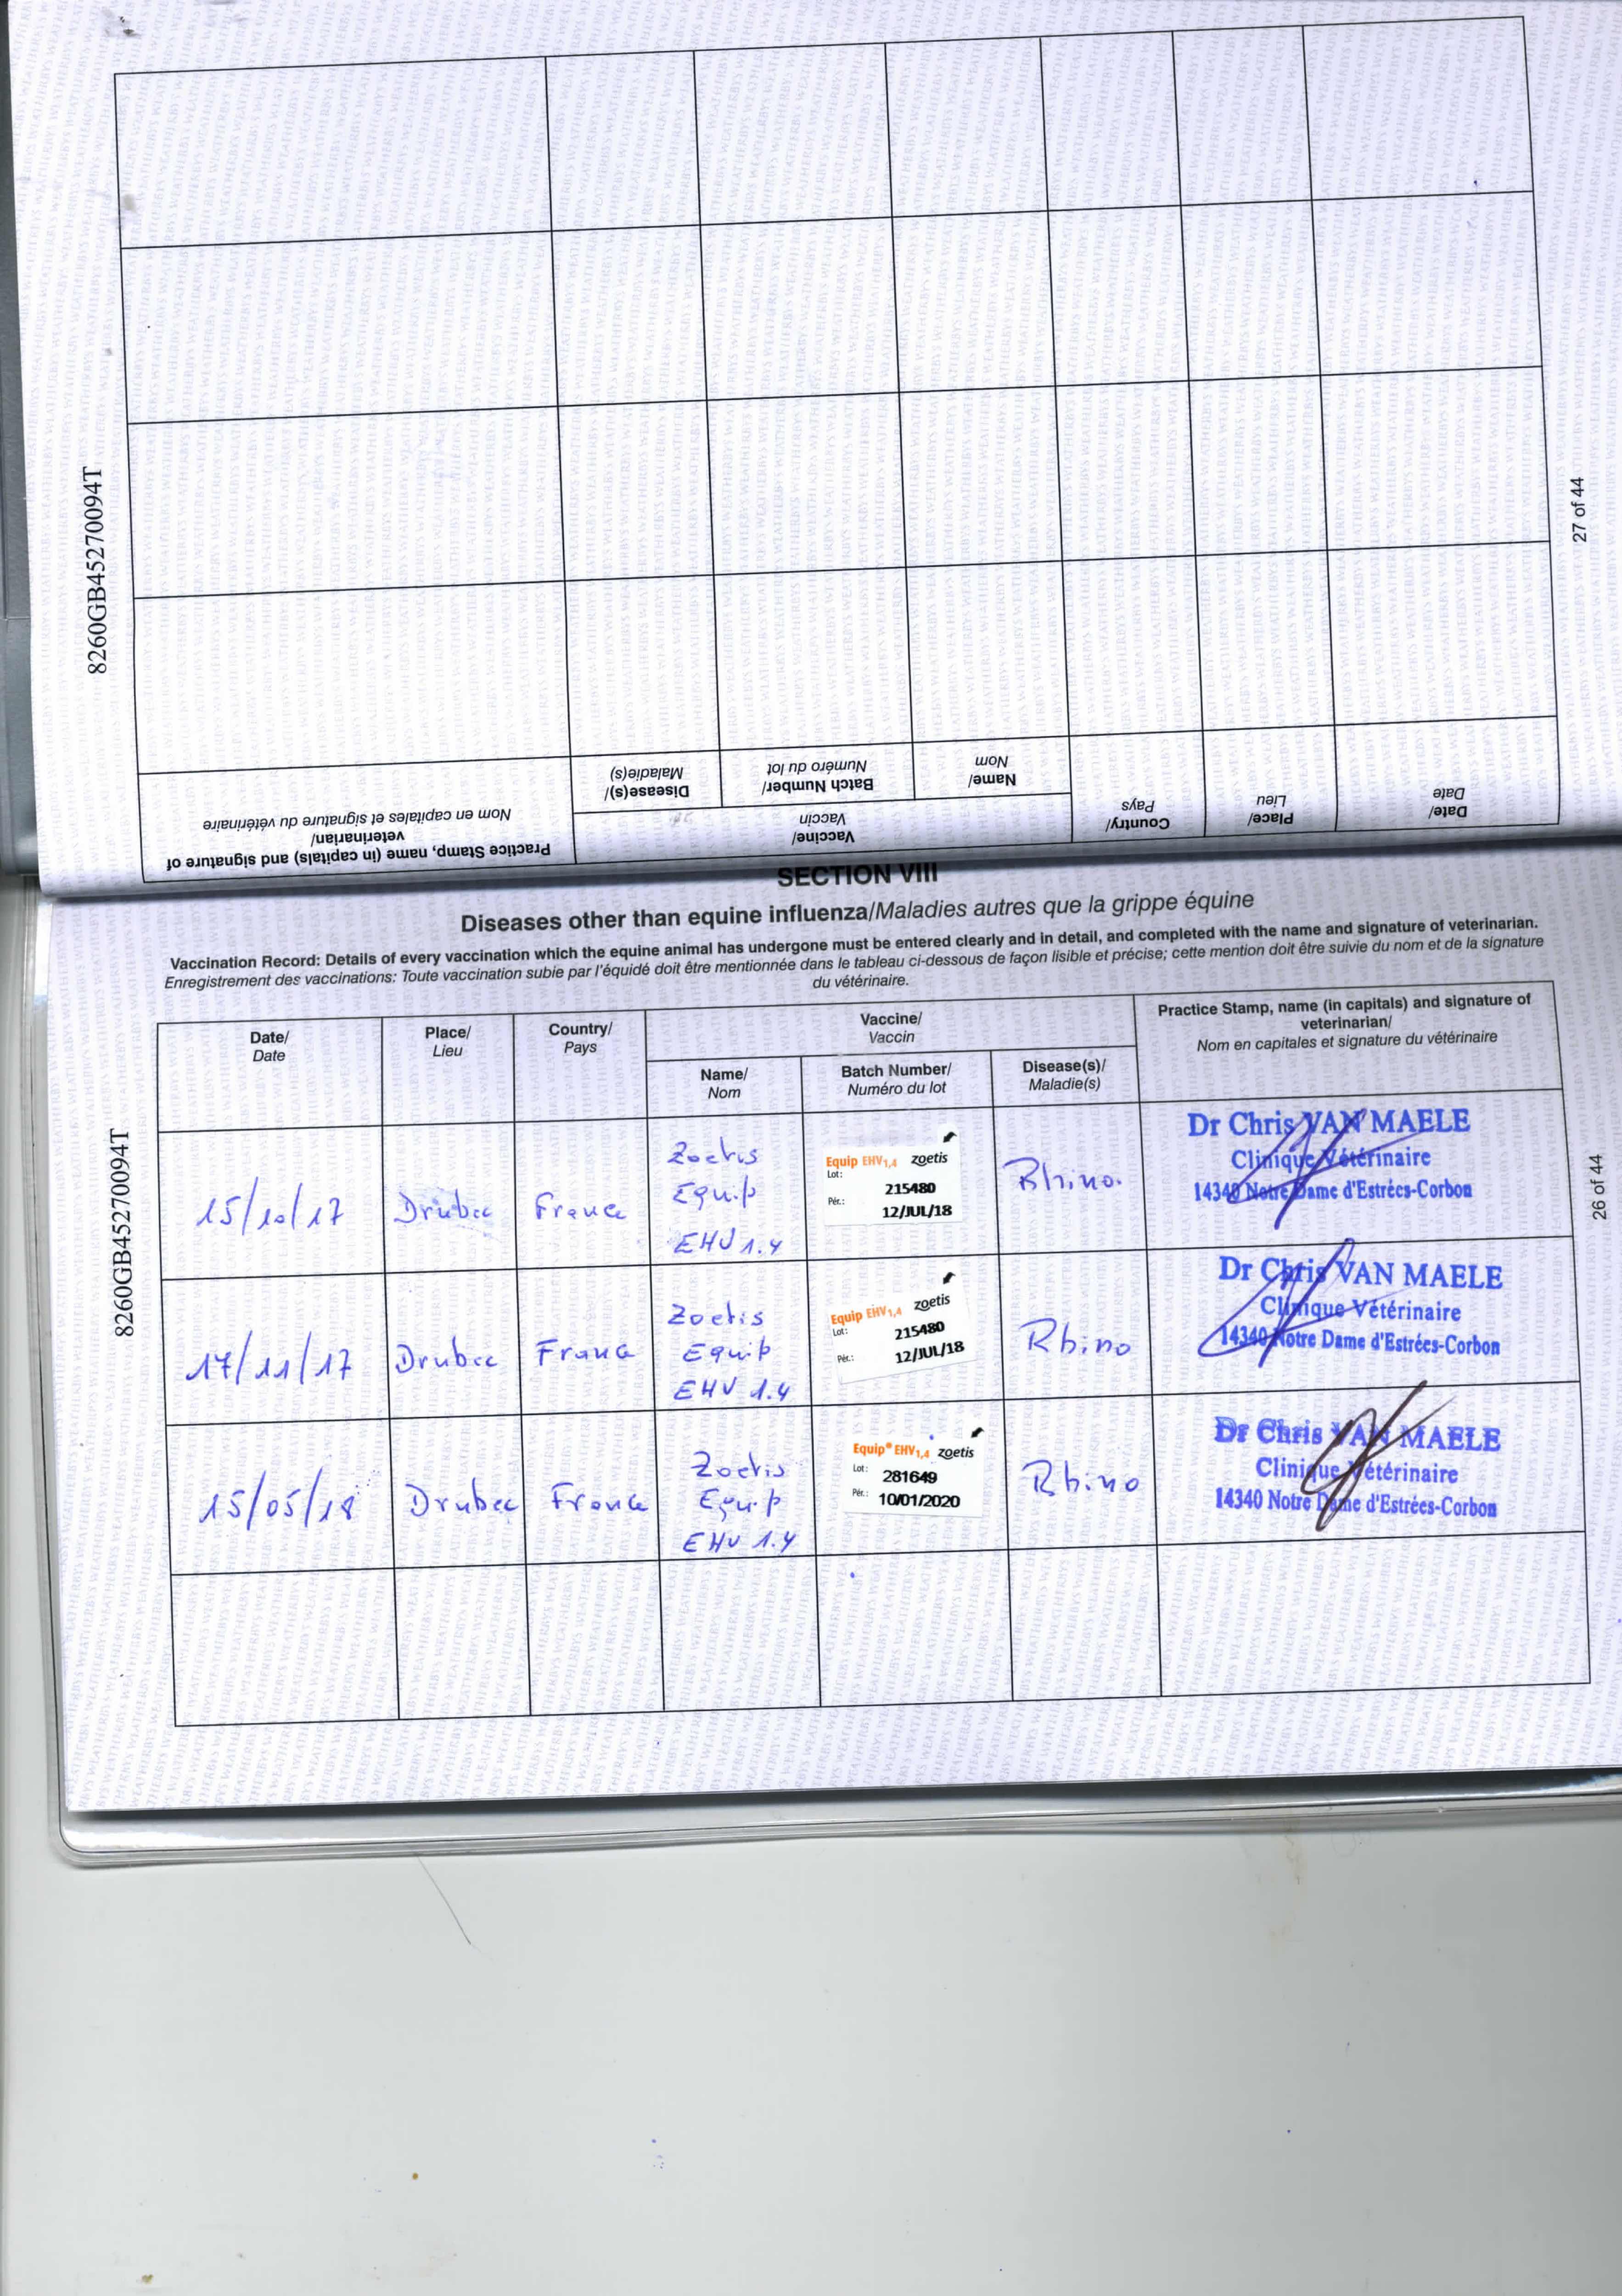 8260GB45270094T
27 of 44
Practice Stamp, name (in capitals) and signature of
veterinarian/
Nom en capitales et signature du vétérinaire
Vaccine/
Vaccin
Disease(s)/
Maladie(s)
Batch Number/
Numéro du lot
Name/
Nom
Country/
Pays
Place/
Lieu
Date/
Date
SECTION VIII
Diseases other than equine influenza/Maladies autres que la grippe équine
Vaccination Record: Details of every vaccination which the equine animal has undergone must be entered clearly and in detail, and completed with the name and signature of veterinarian.
Enregistrement des vaccinations: Toute vaccination subie par l'équidé doit être mentionnée dans le tableau ci-dessous de façon lisible et précise; cette mention doit être suivie du nom et de la signature
du vétérinaire.
8260GB45270094T
26 of 44
Date/
Date
Place/
Lieu
Country/
Pays
Vaccine/
Vaccin
Name/
Nom
Batch Number/
Numéro du lot
Disease(s)/
Maladie(s)
Practice Stamp, name (in capitals) and signature of
veterinarian/
Nom en capitales et signature du vétérinaire
15/10/17
Drubec
France
Zoetis
Equip
EHV 1.4
Equip EHV1,4 zoetis
Lot: 215480
Pér.: 12/JUL/18
Rhino.
Dr Chris VAN MAELE
Clinique Vétérinaire
14340 Notre Dame d'Estrées-Corbon
17/11/17
Drubec
France
Zoetis
Equip
EHV 1.4
Equip EHV1,4 zoetis
Lot: 215480
Pér.: 12/JUL/18
Rhino
Dr Chris VAN MAELE
Clinique Vétérinaire
14340 Notre Dame d'Estrées-Corbon
15/05/18
Drubec
France
Zoetis
Equip
EHV 1.4
Equip® EHV1,4 zoetis
Lot: 281649
Pér.: 10/01/2020
Rhino
Dr Chris VAN MAELE
Clinique Vétérinaire
14340 Notre Dame d'Estrées-Corbon